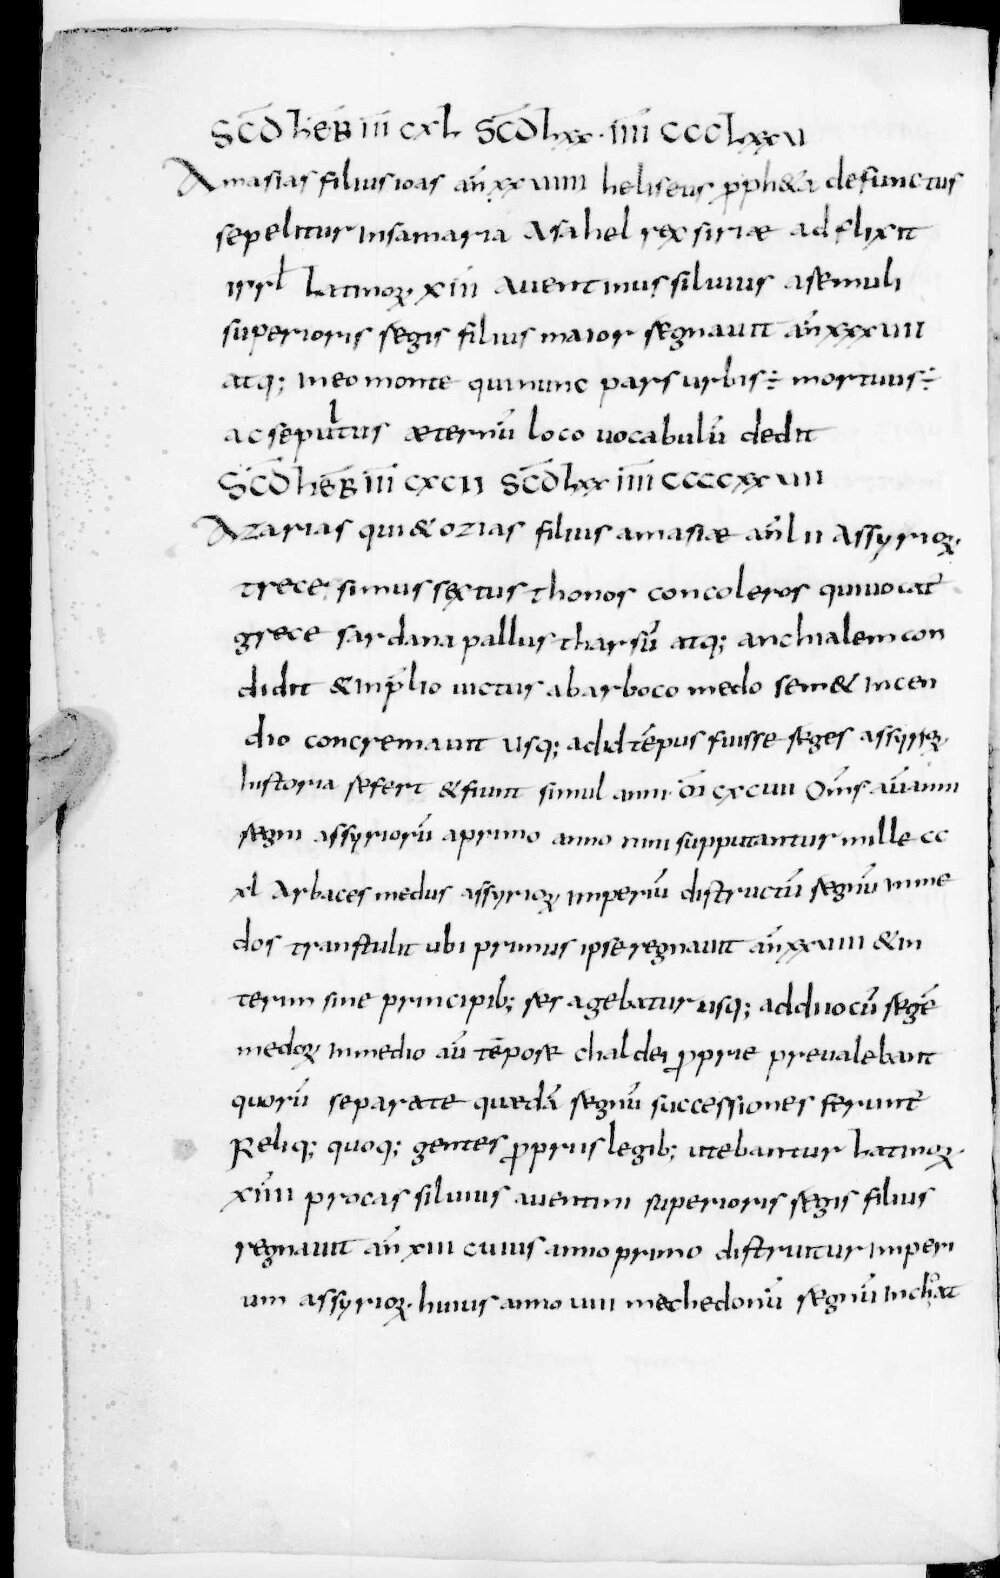 SCD HEB III CXL SCD LXX · IIII CCCLXXVI
Amasias filius ioas añ xxviiii heliseus ꝓph&a defunctus
sepelitur insamaria Asahel rex siriæ adflixit
isrl Latinoꝝ XIII Auentinus siluius asemuli
superioris regis filius maior regnauit añ xxxvii
atq; ineo monte qui nunc pars urbis ÷ mortuus ÷
ac sepultus æternū loco uocabulū dedit
SCD HEB III CXCII SCD LXX IIII CCCCXXVIII
Azarias qui & ozias filius amasiæ añ lii Assyrioꝝ
trece simus sextus thonos concoleros quiuocat̄
grece sardanapallus tharsū atq; anchialem con
didit & inp̄lio uictus abarboco medo sem& incen
dio concremauit usq; adid tēpus fuisse reges assyrioꝝ
historia refert & fiunt simul anni ōi cxcvii Om̄s aū anni
regni assyriorū aprimo anno nini supputantur mille cc
xl Arbaces medus assyrioꝝ imperiū distructū regnū inme
dos transtulit ubi primus ipse regnauit añ xxviii & in
terim sine principib; res agebatur usq; adduocū regē
medoꝝ inmedio aū tēpore chaldei ꝓprie preualebant
quorū separate quædā regnū successiones ferunt̄
Reliq; quoq; gentes ꝓpriis legib; utebantur Latinoꝝ
XIIII procas siluius auentini superioris regis filius
regnauit añ xiii cuius anno primo distruitur imperi
um assyrioꝝ huius anno uii mechedoniū regnū inchoat